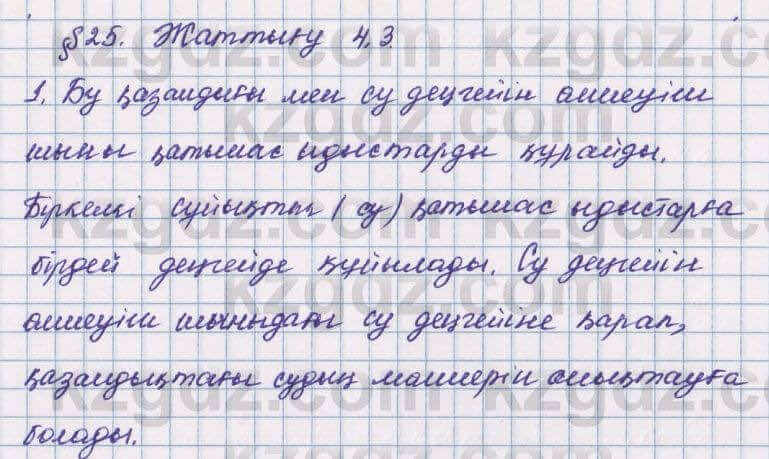 §25. Жаттығу 4.3
1. Бу қазандығы мен су деңгейін өлшеуіш
шыны қатынас ыдыстарды құрайды.
Біркелкі сұйықтық (су) қатынас ыдыстарға
бірдей деңгейде құйылады. Су деңгейін
өлшеуіш шыныдағы су деңгейіне қарап,
қазандықтағы судың мөлшерін анықтауға
болады.
kzgdz.com